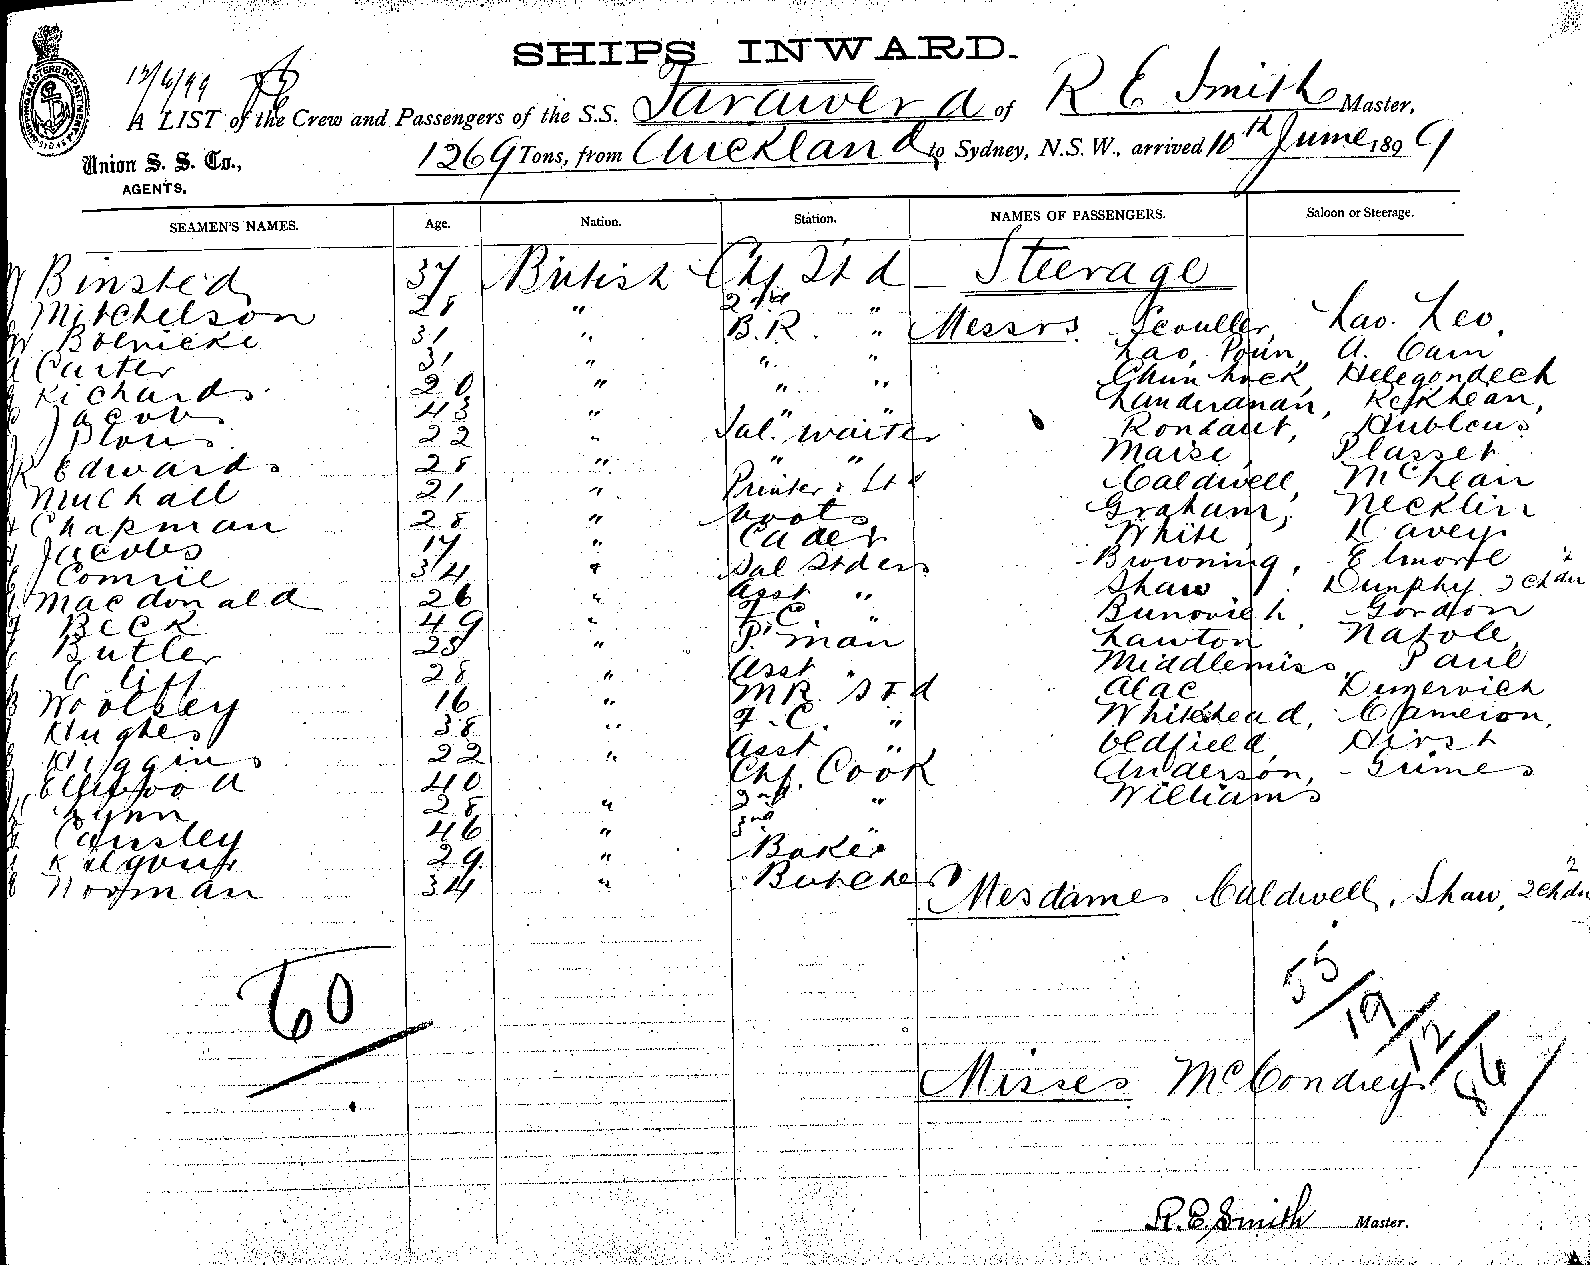 SHIPS INWARD.
12/6/99
A LIST of the Crew and Passengers of the S.S. Tarawera of R E Smith Master,
Union S. S. Co.,
AGENTS.
1269 Tons, from Auckland to Sydney, N.S.W., arrived 10th June, 1899
SEAMEN'S NAMES. Age. Nation. Station. NAMES OF PASSENGERS. Saloon or Steerage.
Binsted 37 British Chf Std Steerage
Mitchelson 28 " 2nd "
Bolnicke 31 " B.R. " Messrs Scouller, Lao. Leo,
Carter 31 " " " Lao, Poun, A. Cam
Richards 20 " " " Chun hock, Helegondech
Jacobs 43 " " " Landeranan, Rekhean,
Plows 22 " Sal. waiter Rondaut, Hubleus
Edwards 28 " " " Maise, Plasset
Muchall 21 " Printer & Std Caldwell, McLean
Chapman 28 " boots Graham, Necklin
Jacobs 17 " Cader White Davey
Comrie 34 " Sal Stdess Browning, Elmore
Macdonald 26 " Asst " Shaw Dunphy 2 chdn
Beck 49 " F C " Bunovich, Gordon
Butler 25 " P. man Lawton Natole,
28 " Asst " Middlemiss, Paul
Woolley 16 " M R Std Alac Dimervich
Hughes 38 " F. C. " Whitehead, Cameron,
Higgins 22 " Asst " Oldfield Hirst
Ellwood 40 Chf. Cook Anderson, Grimes
Lynn 28 " 2nd " Williams
Cansley 46 " 3rd "
Kilgour 29 " Baker
Norman 34 " Butcher
Mesdames Caldwell, Shaw, 2 chdn
60
55/19/12/86
Misses McCondrey
R. E. Smith Master.